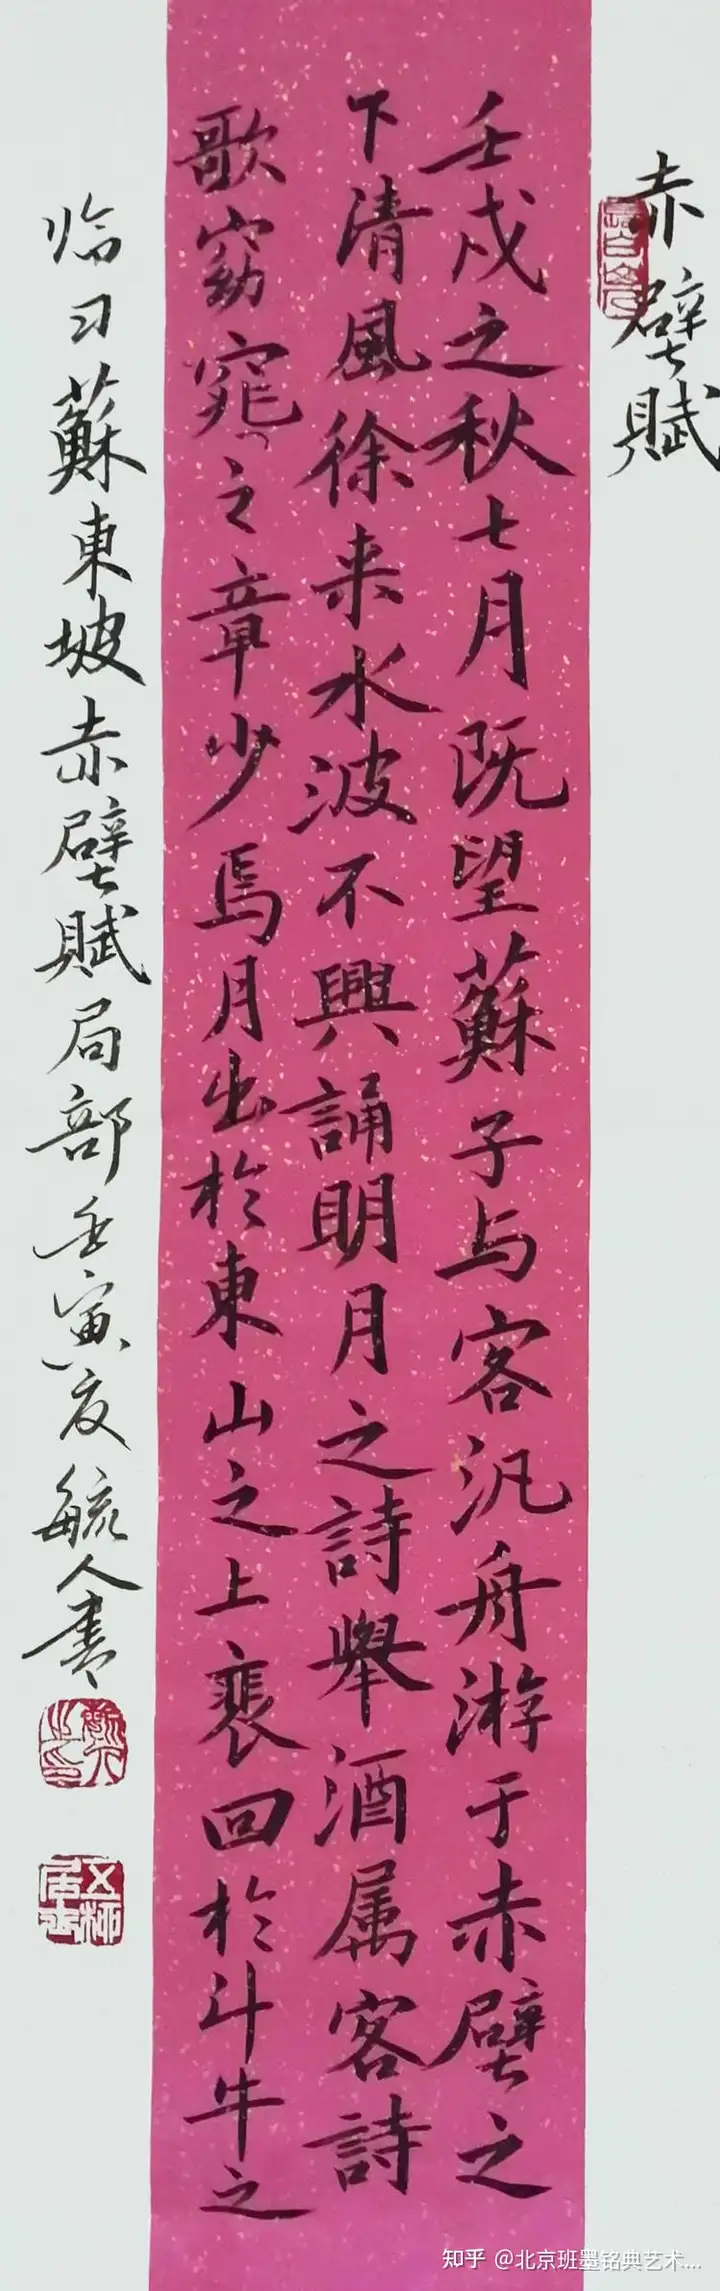 赤壁賦
壬戌之秋七月既望蘇子与客汎舟游于赤壁之
下清風徐来水波不興誦明月之詩舉酒属客詩
歌窈窕之章少焉月出於東山之上裴回於斗牛之
临习蘇東坡赤壁賦局部壬寅夏毓人書
知乎 @北京班墨铭典艺术...